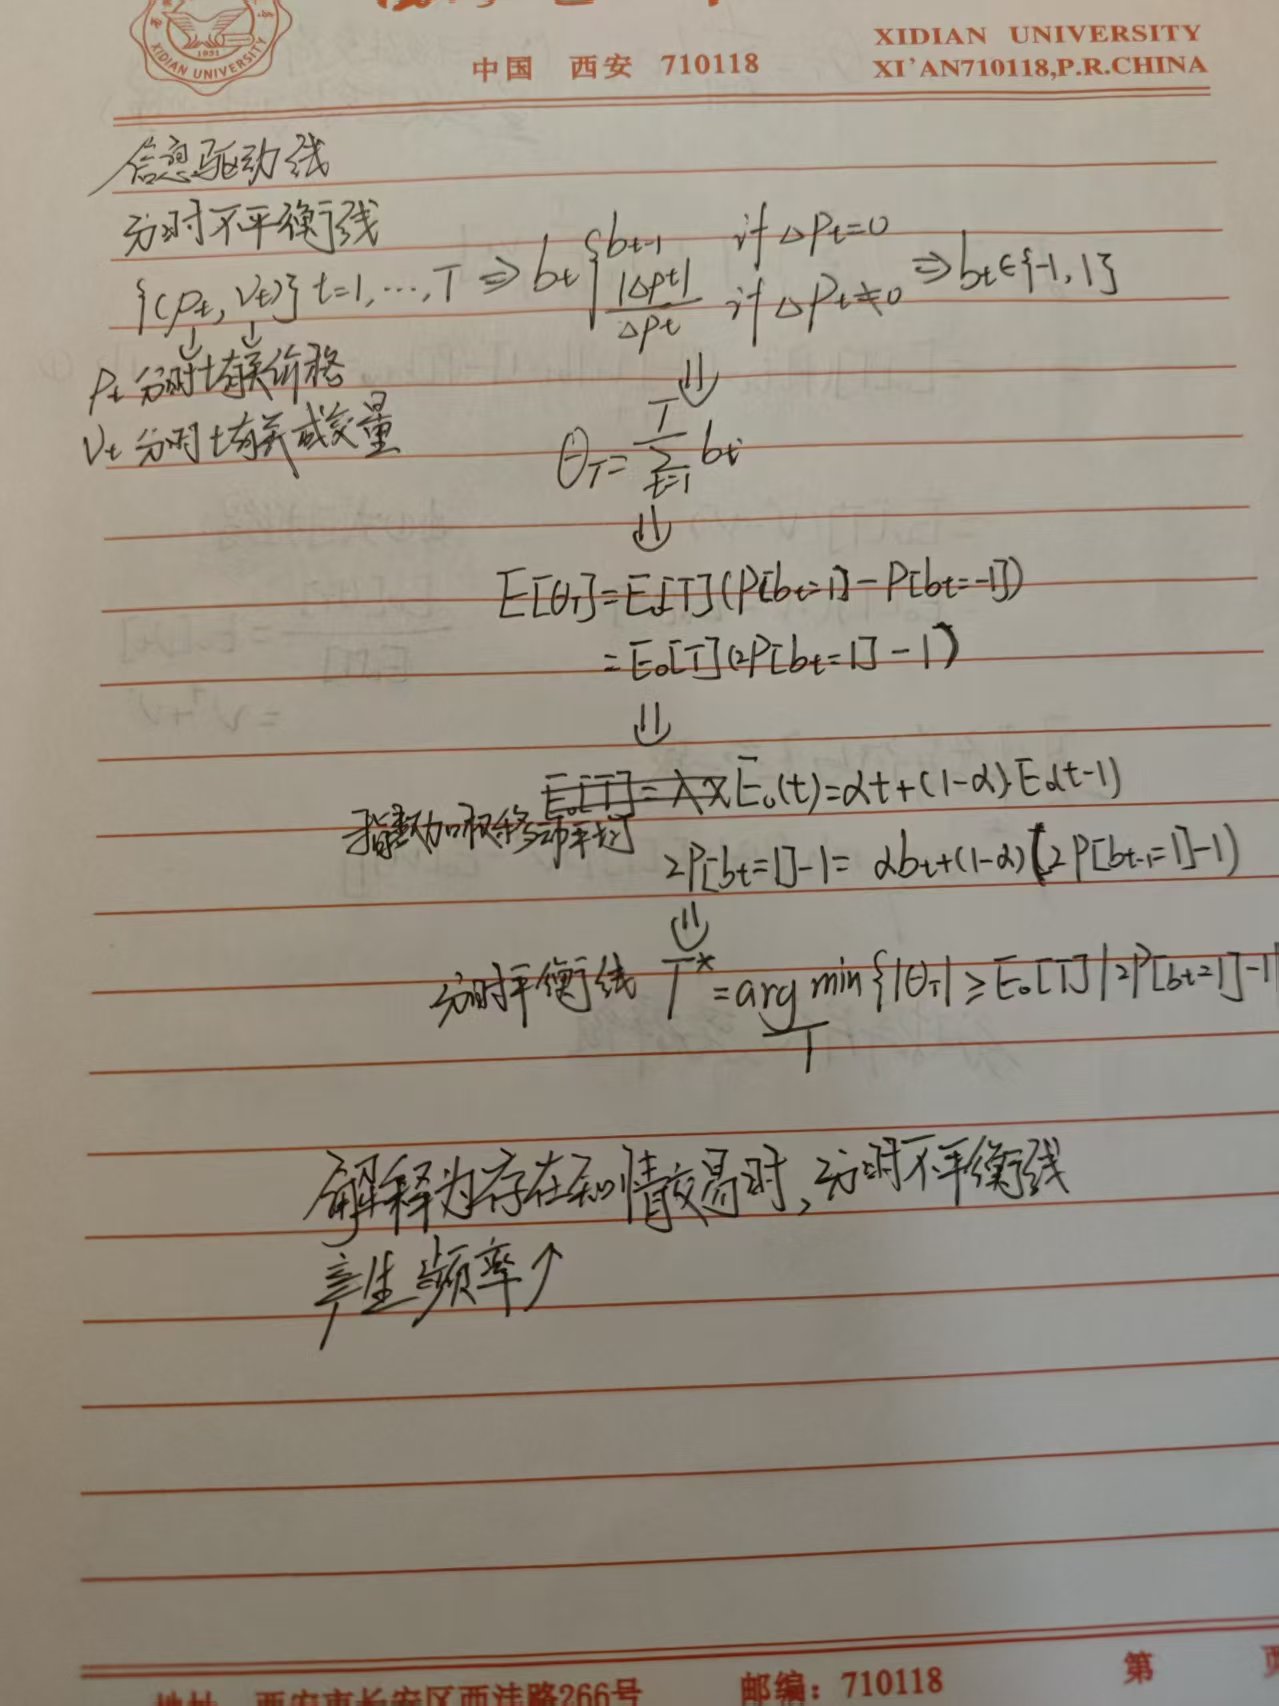 XIDIAN UNIVERSITY
中国 西安 710118
XI'AN710118,P.R.CHINA
1931
XIDIAN UNIVERSITY
信息驱动线
分时不平衡线
{(Pt, Vt)} t=1,…,T ⇒ bt { bt-1 if ΔPt=0
|ΔPt|/ΔPt if ΔPt≠0 ⇒ bt∈{-1,1}
↓ ↓
Pt 分时t有关价格
Vt 分时t有关成交量
⇓
θT= ∑_{t=1}^{T} bt
⇓
E[θT]=E₀[T](P[bt=1]-P[bt=-1])
=E₀[T](2P[bt=1]-1)
⇓
E₀(t)=αt+(1-α)E₀(t-1)
指数加权移动平均
2P[bt=1]-1= αbt+(1-α)(2P[bt-1=1]-1)
⇓
分时平衡线 T* = arg min_T {|θT|≥E₀[T]|2P[bt=1]-1|
解释为存在知情交易时,分时不平衡线
产生频率↑
第 页
地址 西安市长安区西沣路266号 邮编：710118